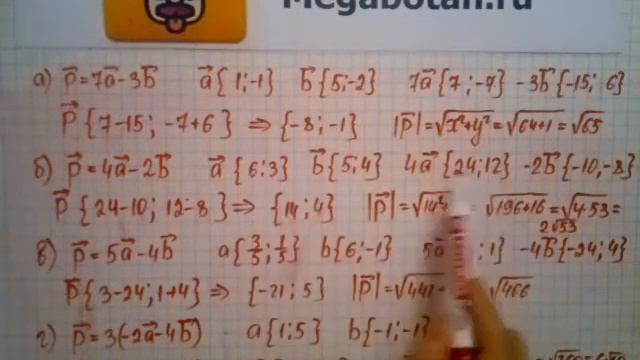 Megabotan.ru
а) p⃗=7a⃗-3b⃗ a⃗{1;-1} b⃗{5;-2} 7a⃗{7;-7} -3b⃗{-15; 6}
p⃗{7-15; -7+6} ⇒ {-8;-1} |p⃗|=√x²+y² = √64+1 = √65
б) p⃗=4a⃗-2b⃗ a⃗{6;3} b⃗{5;4} 4a⃗{24;12} -2b⃗{-10,-8}
p⃗{24-10; 12-8} ⇒ {14;4} |p⃗|=√14² = √196+16 = √4·53 =
2√53
в) p⃗=5a⃗-4b⃗ a{3/5; 1/5} b{6;-1} 5a ;1} -4b⃗{-24;4}
p⃗{3-24; 1+4} ⇒ {-21;5} |p⃗|=√441+ √466
г) p⃗=3(-2a⃗-4b⃗) a{1;5} b{-1;-1